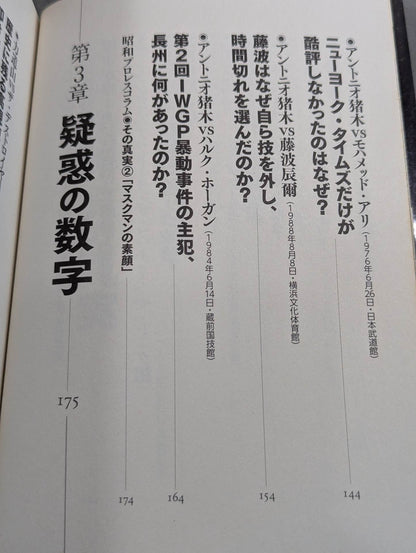 ●アントニオ猪木vsモハメッド・アリ(1976年6月26日・日本武道館)
ニューヨーク・タイムズだけが
酷評しなかったのはなぜ?
144
●アントニオ猪木vs藤波辰爾(1988年8月8日・横浜文化体育館)
藤波はなぜ自ら技を外し、
時間切れを選んだのか?
154
●アントニオ猪木vsハルク・ホーガン(1984年6月14日・蔵前国技館)
第2回IWGP暴動事件の主犯、
長州に何があったのか?
164
昭和プロレスコラム●その真実②「マスクマンの素顔」
174
第3章 疑惑の数字
175